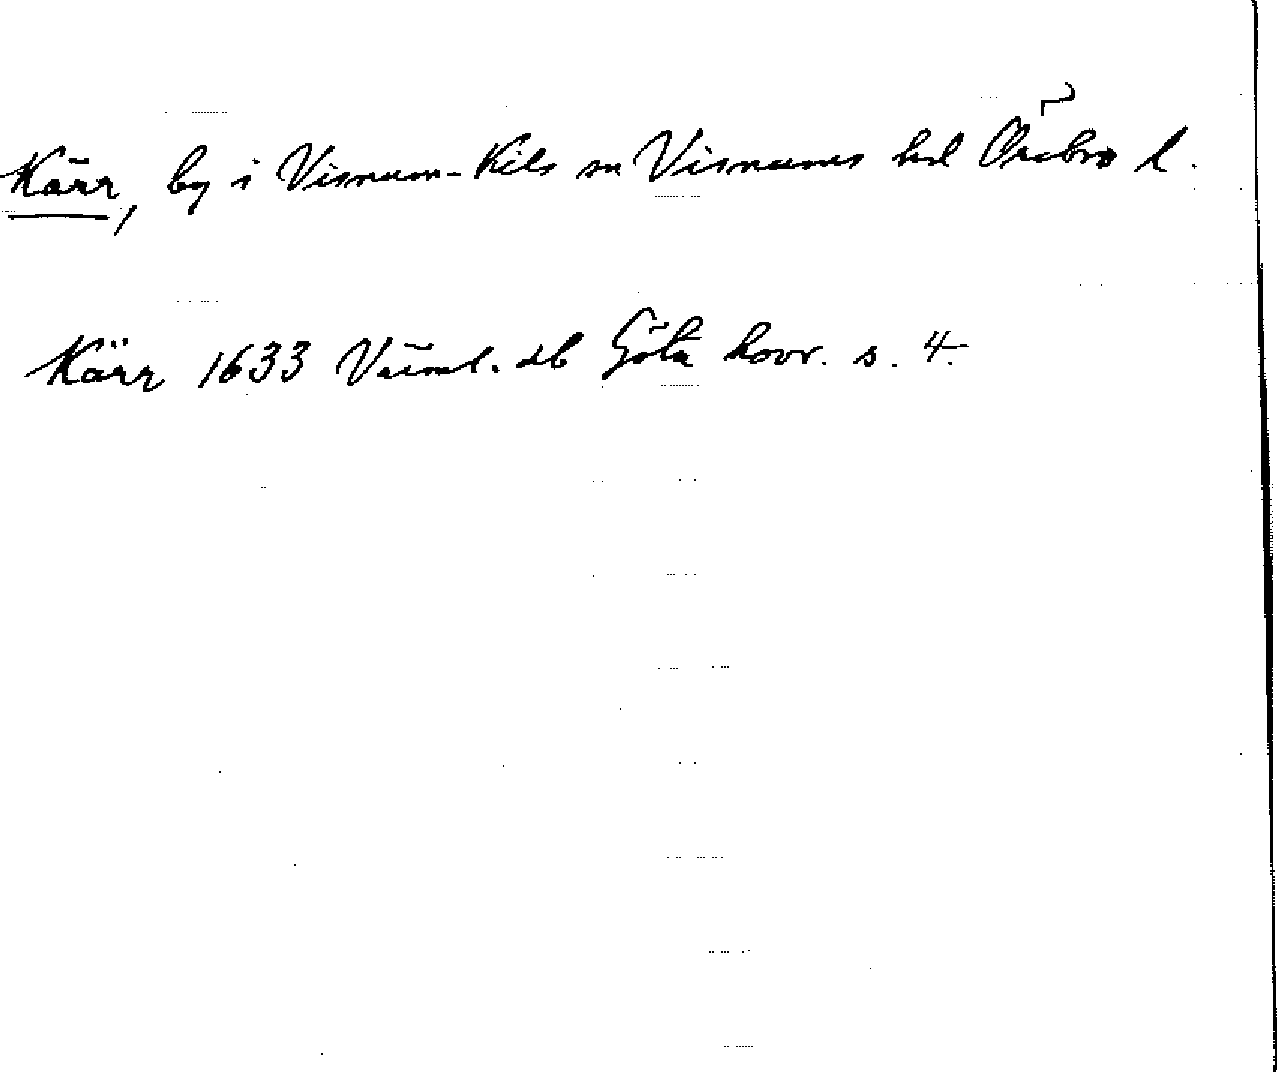 Kärr, by i Visnum-Kils sn Visnums hd Örebro l.
Kärr 1633 Värml. db Göta hovr. s. 4.